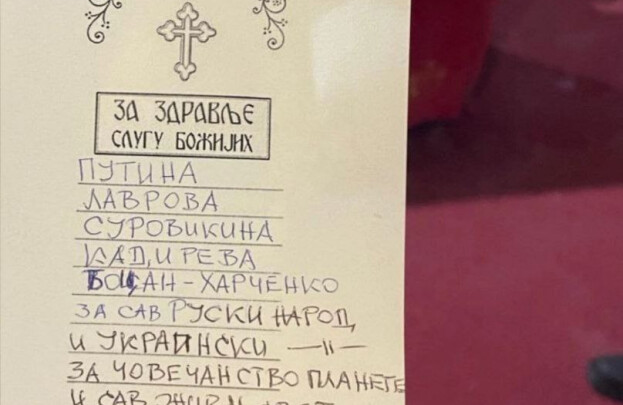 ЗА ЗДРАВЉЕ
СЛУГУ БОЖИЈИХ
ПУТИНА
ЛАВРОВА
СУРОВИКИНА
КАДИРЕВА
БОЦАН-ХАРЧЕНКО
ЗА САВ РУСКИ НАРОД,
И УКРАИНСКИ —11—
ЗА ЧОВЕЧАНСТВО ПЛАНЕТЕ
И САВ